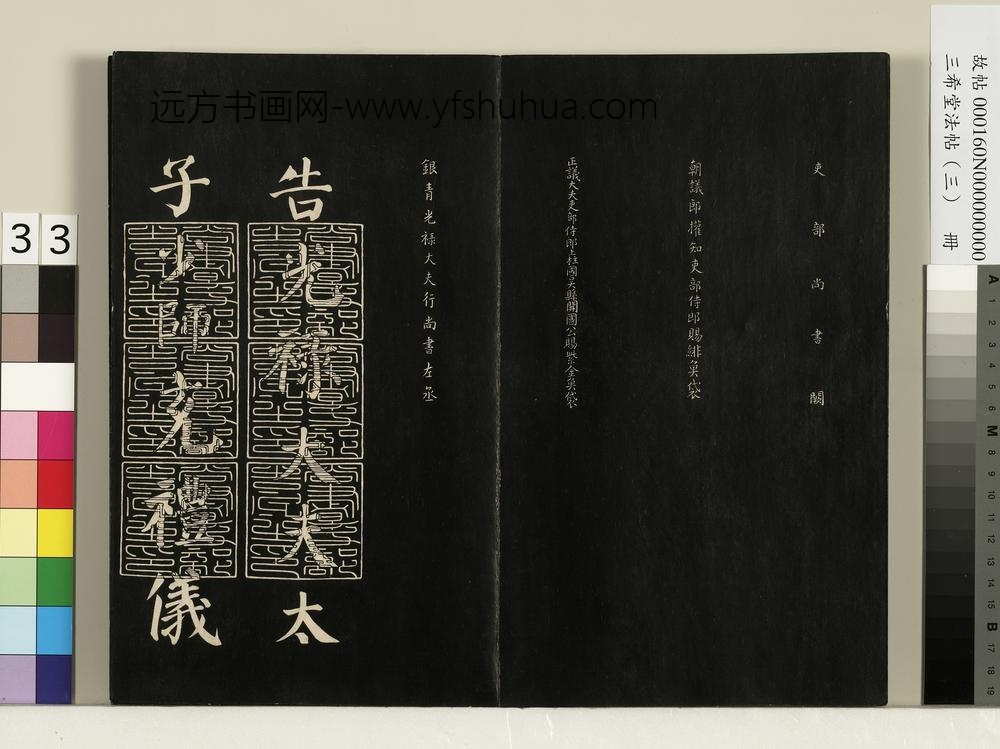 远方书画网-www.yfshuhua.com
吏部尚書闕
朝議郎權知吏部侍郎賜緋魚袋
正議大夫吏部侍郎上柱國吳縣開國公賜紫金魚袋
銀青光祿大夫行尚書左丞
告光祿大夫太
子少師充禮儀
故帖 000160N000000000
三希堂法帖(三) 冊
3
3
A
1
2
3
4
5
6
M
8
9
10
11
12
13
14
15
B
17
18
19